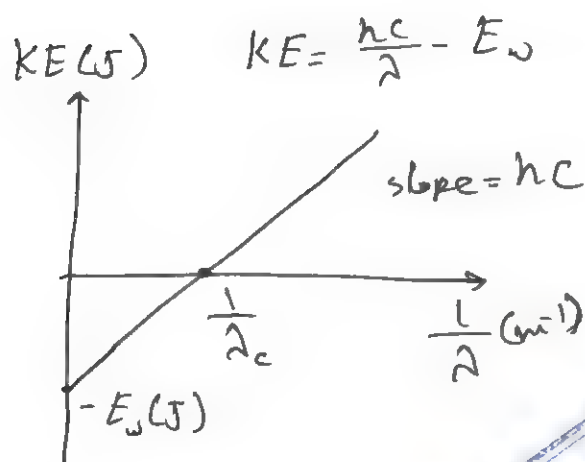 KE(J)
KE = hc/λ - E_w
slope = hc
1/λ_c
1/λ (m⁻¹)
-E_w(J)